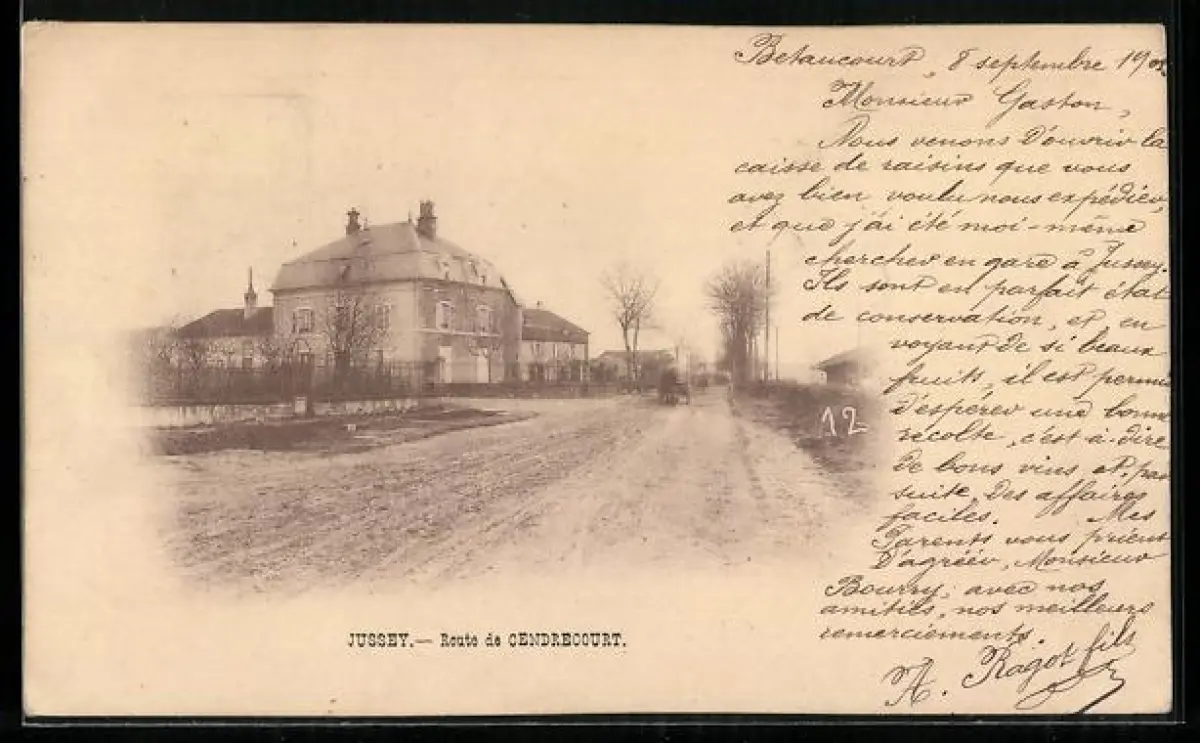 Betaucourt, 8 septembre 190
Monsieur Gaston,
Nous venons d'ouvrir la
caisse de raisins que vous
avez bien voulu nous expédier,
et que j'ai été moi-même
chercher en gare à Jussey.
Ils sont en parfait état
de conservation, et en
voyant de si beaux
fruits, il est permis
d'espérer une bonne
récolte, c'est-à-dire
de bons vins et, par
suite, des affaires
faciles. Mes
Parents vous prient
d'agréer, Monsieur
Bourry, avec nos
amitiés, nos meilleurs
remerciements.
A. Ragot fils
12
JUSSEY. — Route de CENDRECOURT.